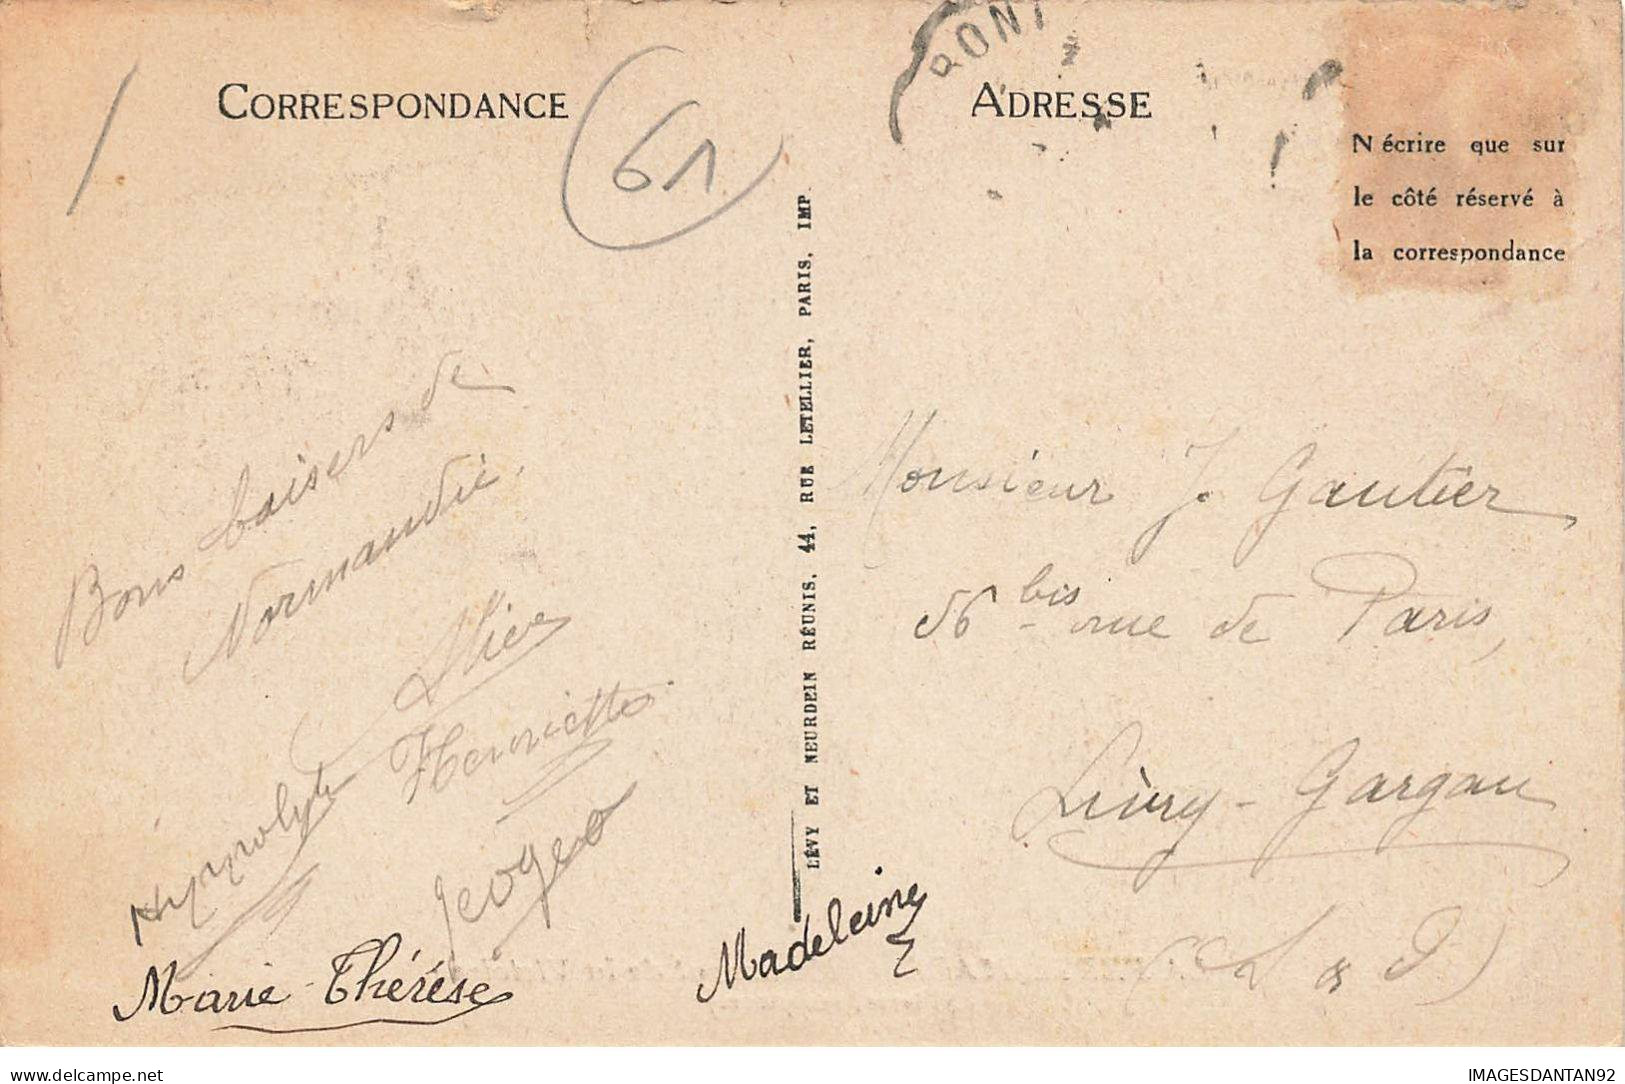 CORRESPONDANCE
61
Bons baisers de
Normandie.
Alice
Henriette
Hyppolyte
Georges
Marie Thérèse
Madeleine
LÉVY ET NEURDEIN RÉUNIS, 44, RUE LETELLIER, PARIS, IMP.
PONT
ADRESSE
N'écrire que sur
le côté réservé à
la correspondance
Monsieur J. Gautier
56 bis rue de Paris,
Livry-Gargan
(S & O)
IMAGESDANTAN92